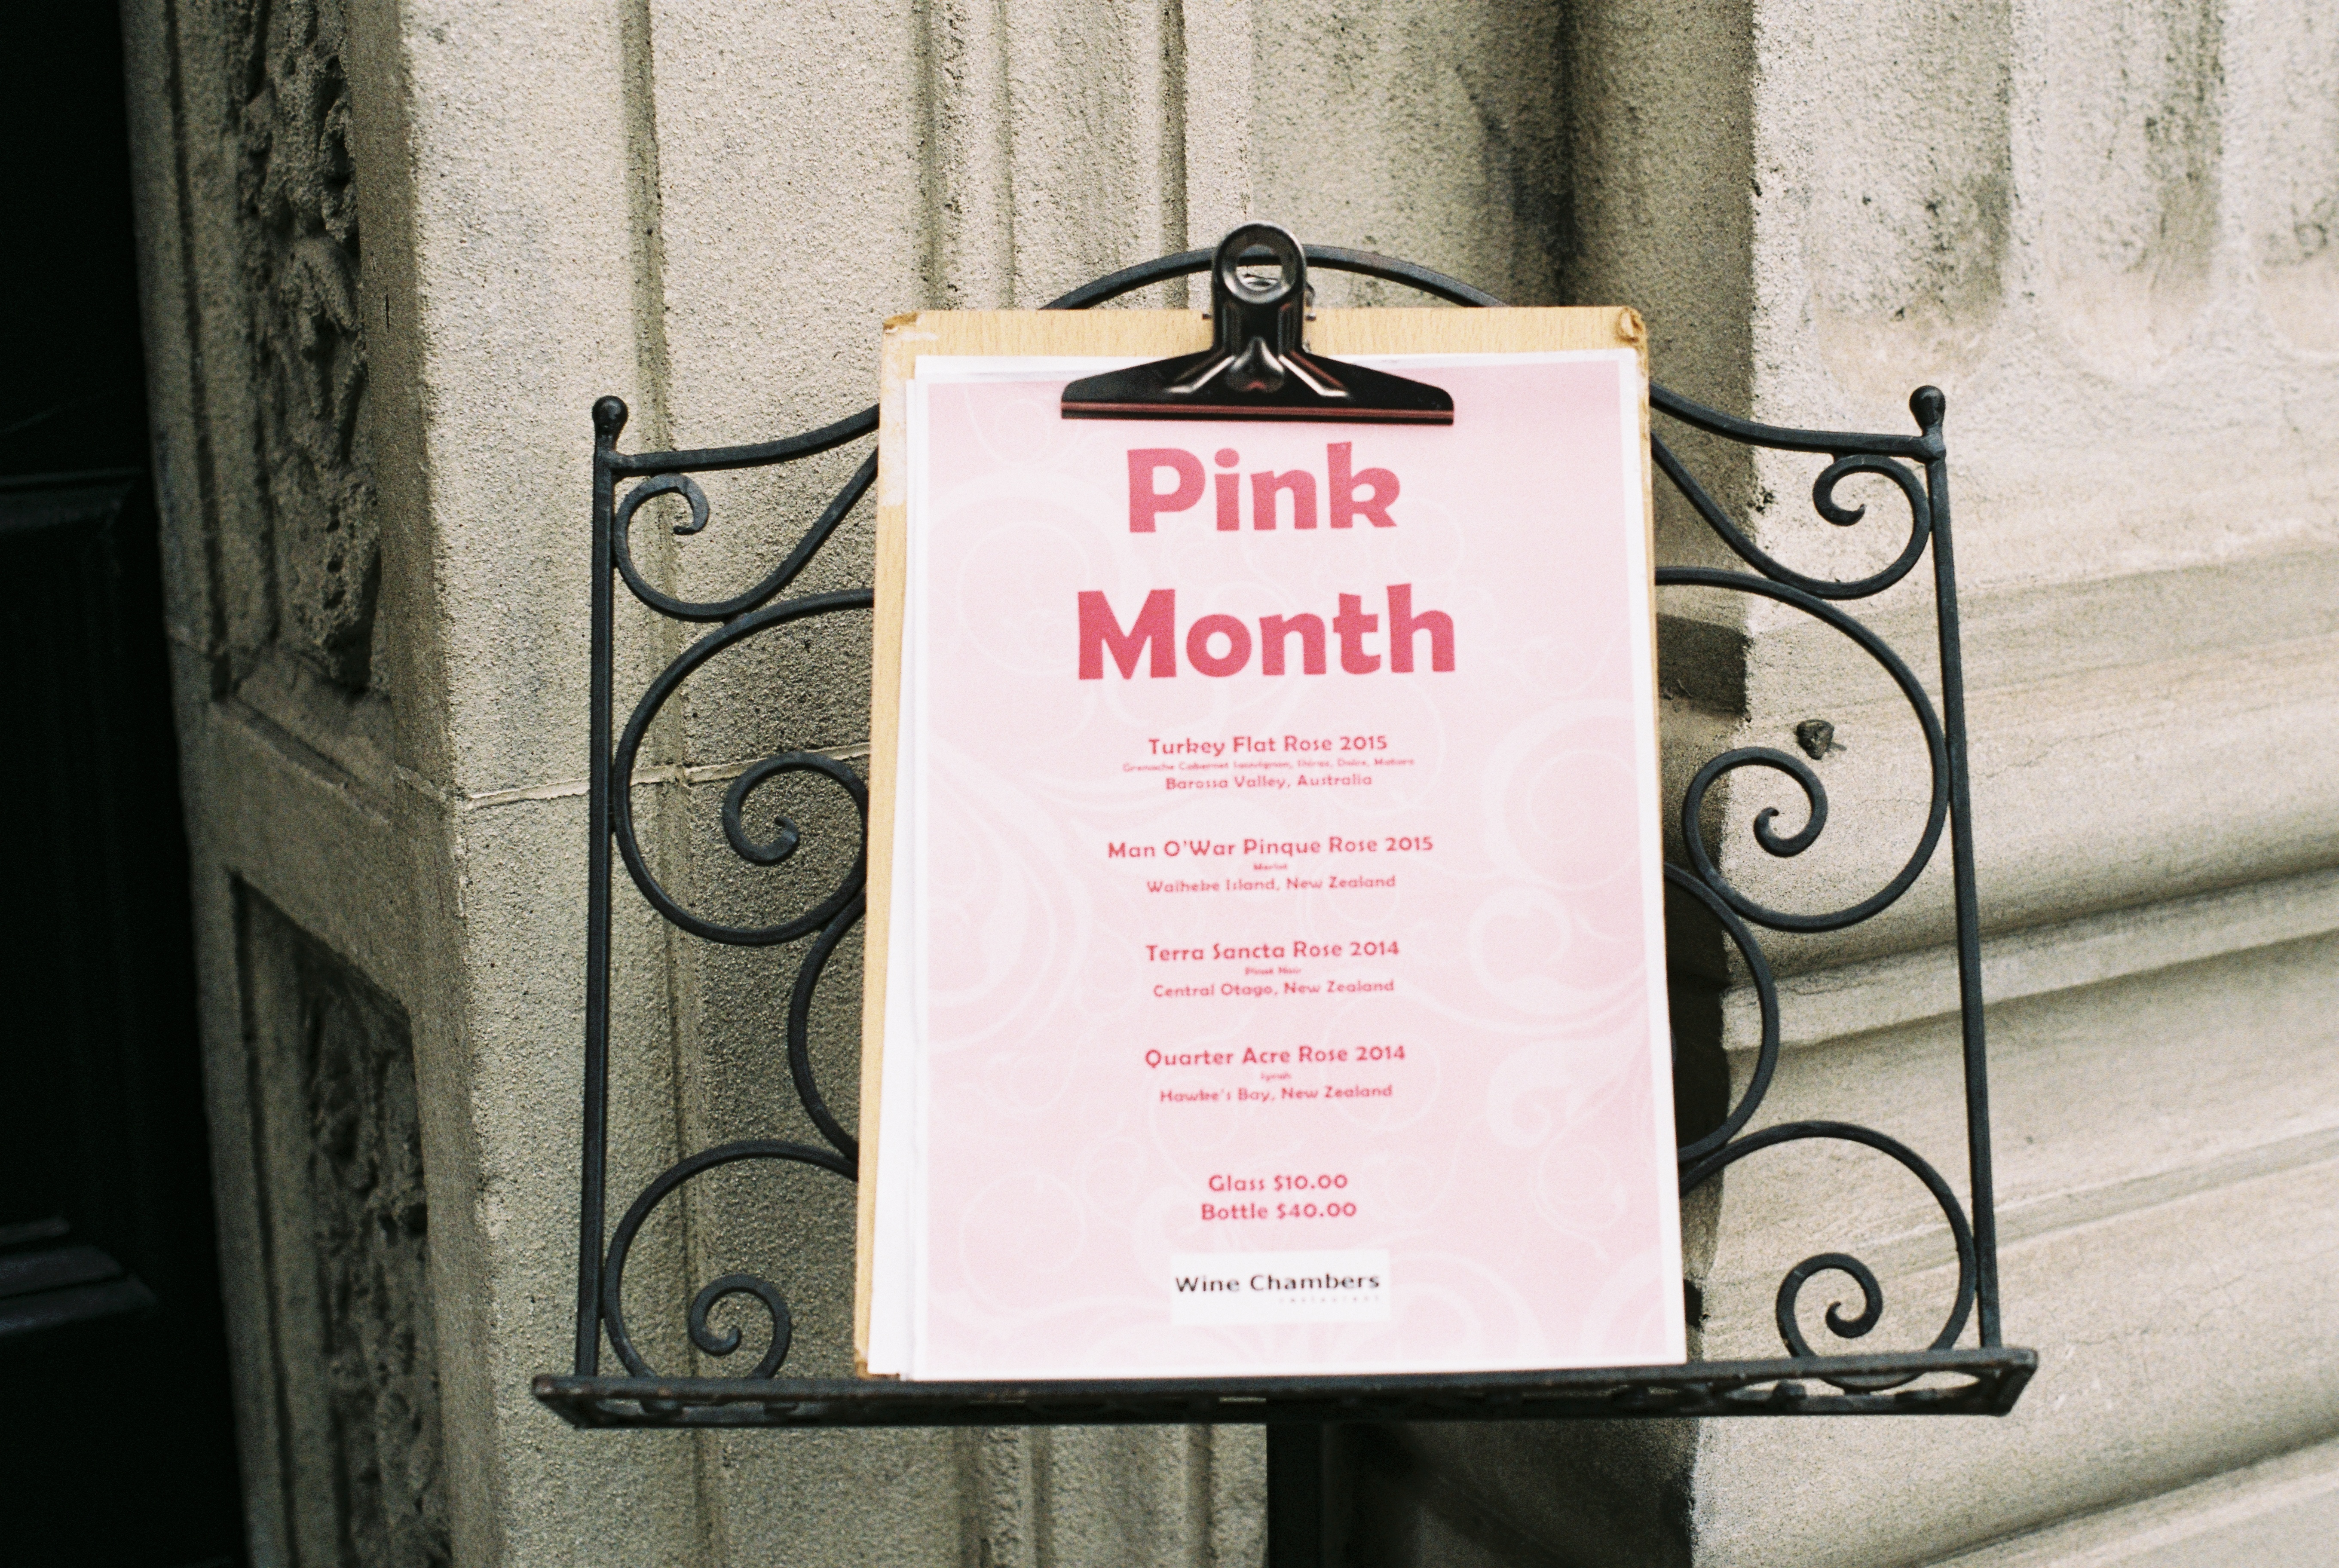 Pink
Month
Turkey Flat Rose 2015
Grenache Cabernet Sauvignon, Shiraz, Dolce, Mataro
Barossa Valley, Australia
Man O'War Pinque Rose 2015
Merlot
Waiheke Island, New Zealand
Terra Sancta Rose 2014
Pinot Noir
Central Otago, New Zealand
Quarter Acre Rose 2014
Syrah
Hawke's Bay, New Zealand
Glass $10.00
Bottle $40.00
Wine Chambers
restaurant